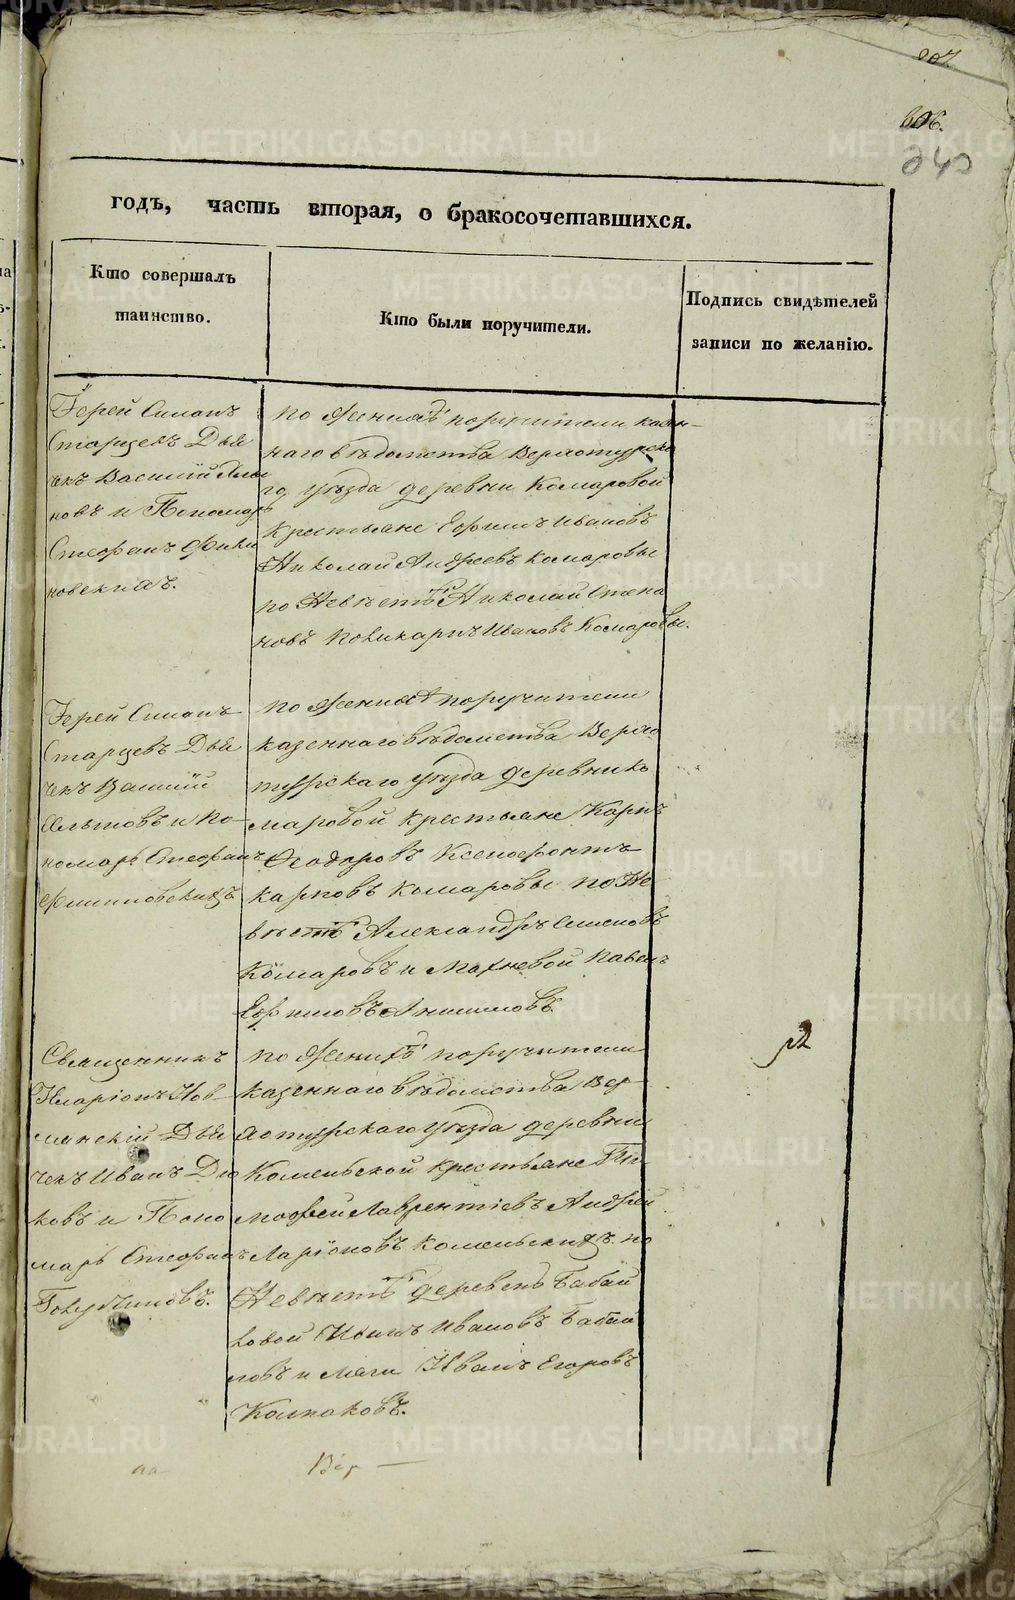 годъ, часть вторая, о бракосочетавшихся.
Кто совершалъ
таинство.
Кто были поручители.
Подпись свидѣтелей
записи по желанію.
Іерей Симонъ
Старцевъ Дья
чекъ Василій
новъ и Пономарь
Стефанъ
новскихъ.
по Женихѣ поручители казен-
наго вѣдомства Верхотурска
го уѣзда деревни Комаровой
крестьяне Ефимъ Ивановъ
Николай Андреевъ Комаровы
по Невѣстѣ Николай Степа
новъ Поликарпъ Ивановъ Комаровы.
Іерей Симонъ
Старцевъ Дья
чекъ Василій
и По-
номарь Стефанъ
по Женихѣ поручители
казеннаго вѣдомства Верхо
турскаго уѣзда деревни Ко
маровой крестьяне Карпъ
Феодоровъ Ксенофонтъ
Карповъ Комаровы по Не
вѣстѣ Александръ Семеновъ
Комаровъ и Махневой Павелъ
Ефимовъ Анисимовъ.
Священникъ
Иларіонъ
Дья
чекъ Иванъ Дю
ковъ и Поно
марь Стефанъ
по Женихѣ поручители
казеннаго вѣдомства Вер-
хотурскаго уѣзда деревни
Комельской крестьяне Ти
мофей Лаврентіевъ Андрей
Ларіоновъ Комельскихъ. по
Невѣстѣ деревень Бабай
ловой Иванъ Ивановъ Бабай
ловъ и Иванъ Егоровъ
Колпаковъ.